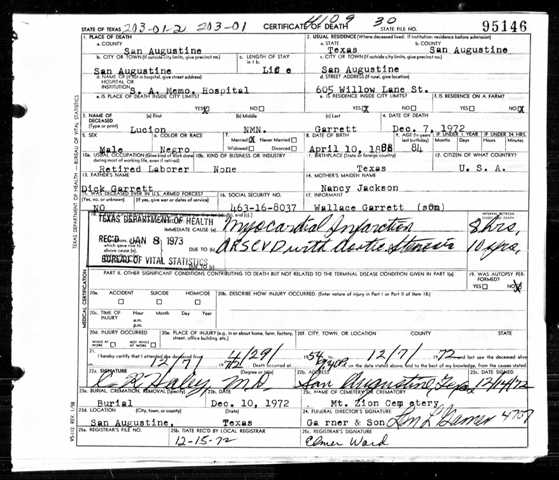 4109 30
STATE OF TEXAS 203-01-2 203-01 CERTIFICATE OF DEATH STATE FILE NO. 95146
1. PLACE OF DEATH
a. COUNTY
San Augustine
2. USUAL RESIDENCE (Where deceased lived. If institution: residence before admission)
a. STATE
Texas
b. COUNTY
San Augustine
b. CITY OR TOWN (If outside city limits, give precinct no.)
San Augustine
c. LENGTH OF STAY
Life
c. CITY OR TOWN (If outside city limits, give precinct no.)
San Augustine
d. NAME OF (If not in hospital, give street address)
HOSPITAL OR
INSTITUTION
S. A. Memo. Hospital
d. STREET ADDRESS
605 Willow Lane St.
e. IS PLACE OF DEATH INSIDE CITY LIMITS?
YES NO
e. IS RESIDENCE INSIDE CITY LIMITS?
YES NO
f. IS RESIDENCE ON A FARM?
YES NO
3. NAME OF
DECEASED
(Type or print)
Lucion NMN. Garrett
4. DATE OF DEATH
Dec. 7, 1972
5. SEX
Male
6. COLOR OR RACE
Negro
7. Married Never Married
Widowed Divorced
8. DATE OF BIRTH
April 10, 1888
84
10a. USUAL OCCUPATION
Retired Laborer
10b. KIND OF BUSINESS OR INDUSTRY
None
11. BIRTHPLACE (State or foreign country)
Texas
12. CITIZEN OF WHAT COUNTRY?
U. S. A.
13. FATHER'S NAME
Dick Garrett
14. MOTHER'S MAIDEN NAME
Nancy Jackson
15. WAS DECEASED EVER IN U.S. ARMED FORCES?
NO
16. SOCIAL SECURITY NO.
463-16-8037
17. INFORMANT
Wallace Garrett (son)
TEXAS DEPARTMENT OF HEALTH
REC'D JAN 8 1973
BUREAU OF VITAL STATISTICS
IMMEDIATE CAUSE (a)
Myocardial Infarction 8 hrs.
DUE TO (b)
ARSCVD with Aortic Stenosis 10 yrs.
DUE TO (c)
PART II. OTHER SIGNIFICANT CONDITIONS CONTRIBUTING TO DEATH BUT NOT RELATED TO THE TERMINAL DISEASE CONDITION GIVEN IN PART I(a)
19. WAS AUTOPSY PERFORMED?
YES NO
20a. ACCIDENT SUICIDE HOMICIDE
20b. DESCRIBE HOW INJURY OCCURRED.
20c. TIME OF INJURY
Hour Month Day Year
20d. INJURY OCCURRED
20e. PLACE OF INJURY
20f. CITY, TOWN, OR LOCATION COUNTY STATE
21. I hereby certify that I attended the deceased from
4/29/ 1954 12/7/ 72
22a. SIGNATURE
C R Haley M.D.
22b. ADDRESS
San Augustine, Texas
12/14/72
23a. BURIAL, CREMATION, REMOVAL (Specify)
Burial
23b. DATE
Dec. 10, 1972
23c. NAME OF CEMETERY OR CREMATORY
Mt. Zion Cemetery.
23d. LOCATION (City, town, or county) (State)
San Augustine, Texas
24. FUNERAL DIRECTOR'S SIGNATURE
Garner & Son 4737
25a. REGISTRAR'S FILE NO.
25b. DATE REC'D BY LOCAL REGISTRAR
12-15-72
25c. REGISTRAR'S SIGNATURE
Elmer Ward
TEXAS DEPARTMENT OF HEALTH — BUREAU OF VITAL STATISTICS
MEDICAL CERTIFICATION